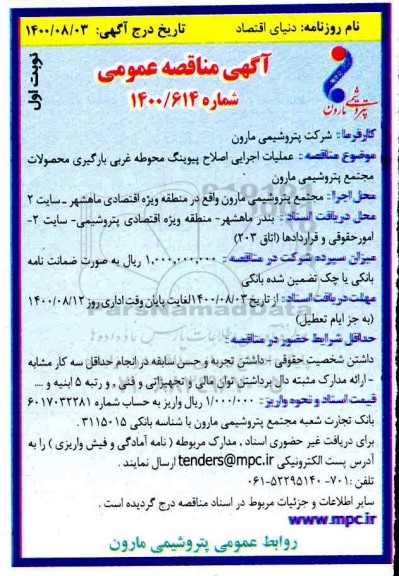 نام روزنامه: دنیای اقتصاد تاریخ درج آگهی: ۱۴۰۰/۰۸/۰۳
نوبت اول
آگهی مناقصه عمومی
شماره ۱۴۰۰/۶۱۴
پتروشیمی مارون
کارفرما: شرکت پتروشیمی مارون
موضوع مناقصه: عملیات اجرایی اصلاح پیوینگ محوطه غربی بارگیری محصولات
مجتمع پتروشیمی مارون
محل اجرا: مجتمع پتروشیمی مارون واقع در منطقه ویژه اقتصادی ماهشهر ـ سایت ۲
محل دریافت اسناد: بندر ماهشهر- منطقه ویژه اقتصادی پتروشیمی- سایت ۲-
امورحقوقی و قراردادها (اتاق ۲۰۲)
میزان سپرده شرکت در مناقصه: ۱,۰۰۰,۰۰۰,۰۰۰ ریال به صورت ضمانت نامه
بانکی یا چک تضمین شده بانکی
مهلت دریافت اسناد: از تاریخ ۱۴۰۰/۰۸/۰۳ لغایت پایان وقت اداری روز ۱۴۰۰/۰۸/۱۲
(به جز ایام تعطیل)
حداقل شرایط حضور در مناقصه:
داشتن شخصیت حقوقی - داشتن تجربه و حسن سابقه در انجام حداقل سه کار مشابه
- ارائه مدارک مثبته دال برداشتن توان مالی و تجهیزاتی و فنی و رتبه ۵ ابنیه و ....
قیمت اسناد و نحوه واریز: ۱/۰۰۰/۰۰۰ ریال واریز به حساب شماره ۶۰۱۷۰۳۲۲۸۱
بانک تجارت شعبه مجتمع پتروشیمی مارون با شناسه بانکی ۳۱۱۵۰۱۵ .
برای دریافت غیر حضوری اسناد , مدارک مربوطه ( نامه آمادگی و فیش واریزی ) را به
آدرس پست الکترونیکی tenders@mpc.ir ارسال نمایند .
تلفن :۷۰۱- ۵۲۲۹۵۱۴۰-۰۶۱
سایر اطلاعات و جزئیات مربوط در اسناد مناقصه درج گردیده است .
www.mpc.ir
روابط عمومی پتروشیمی مارون